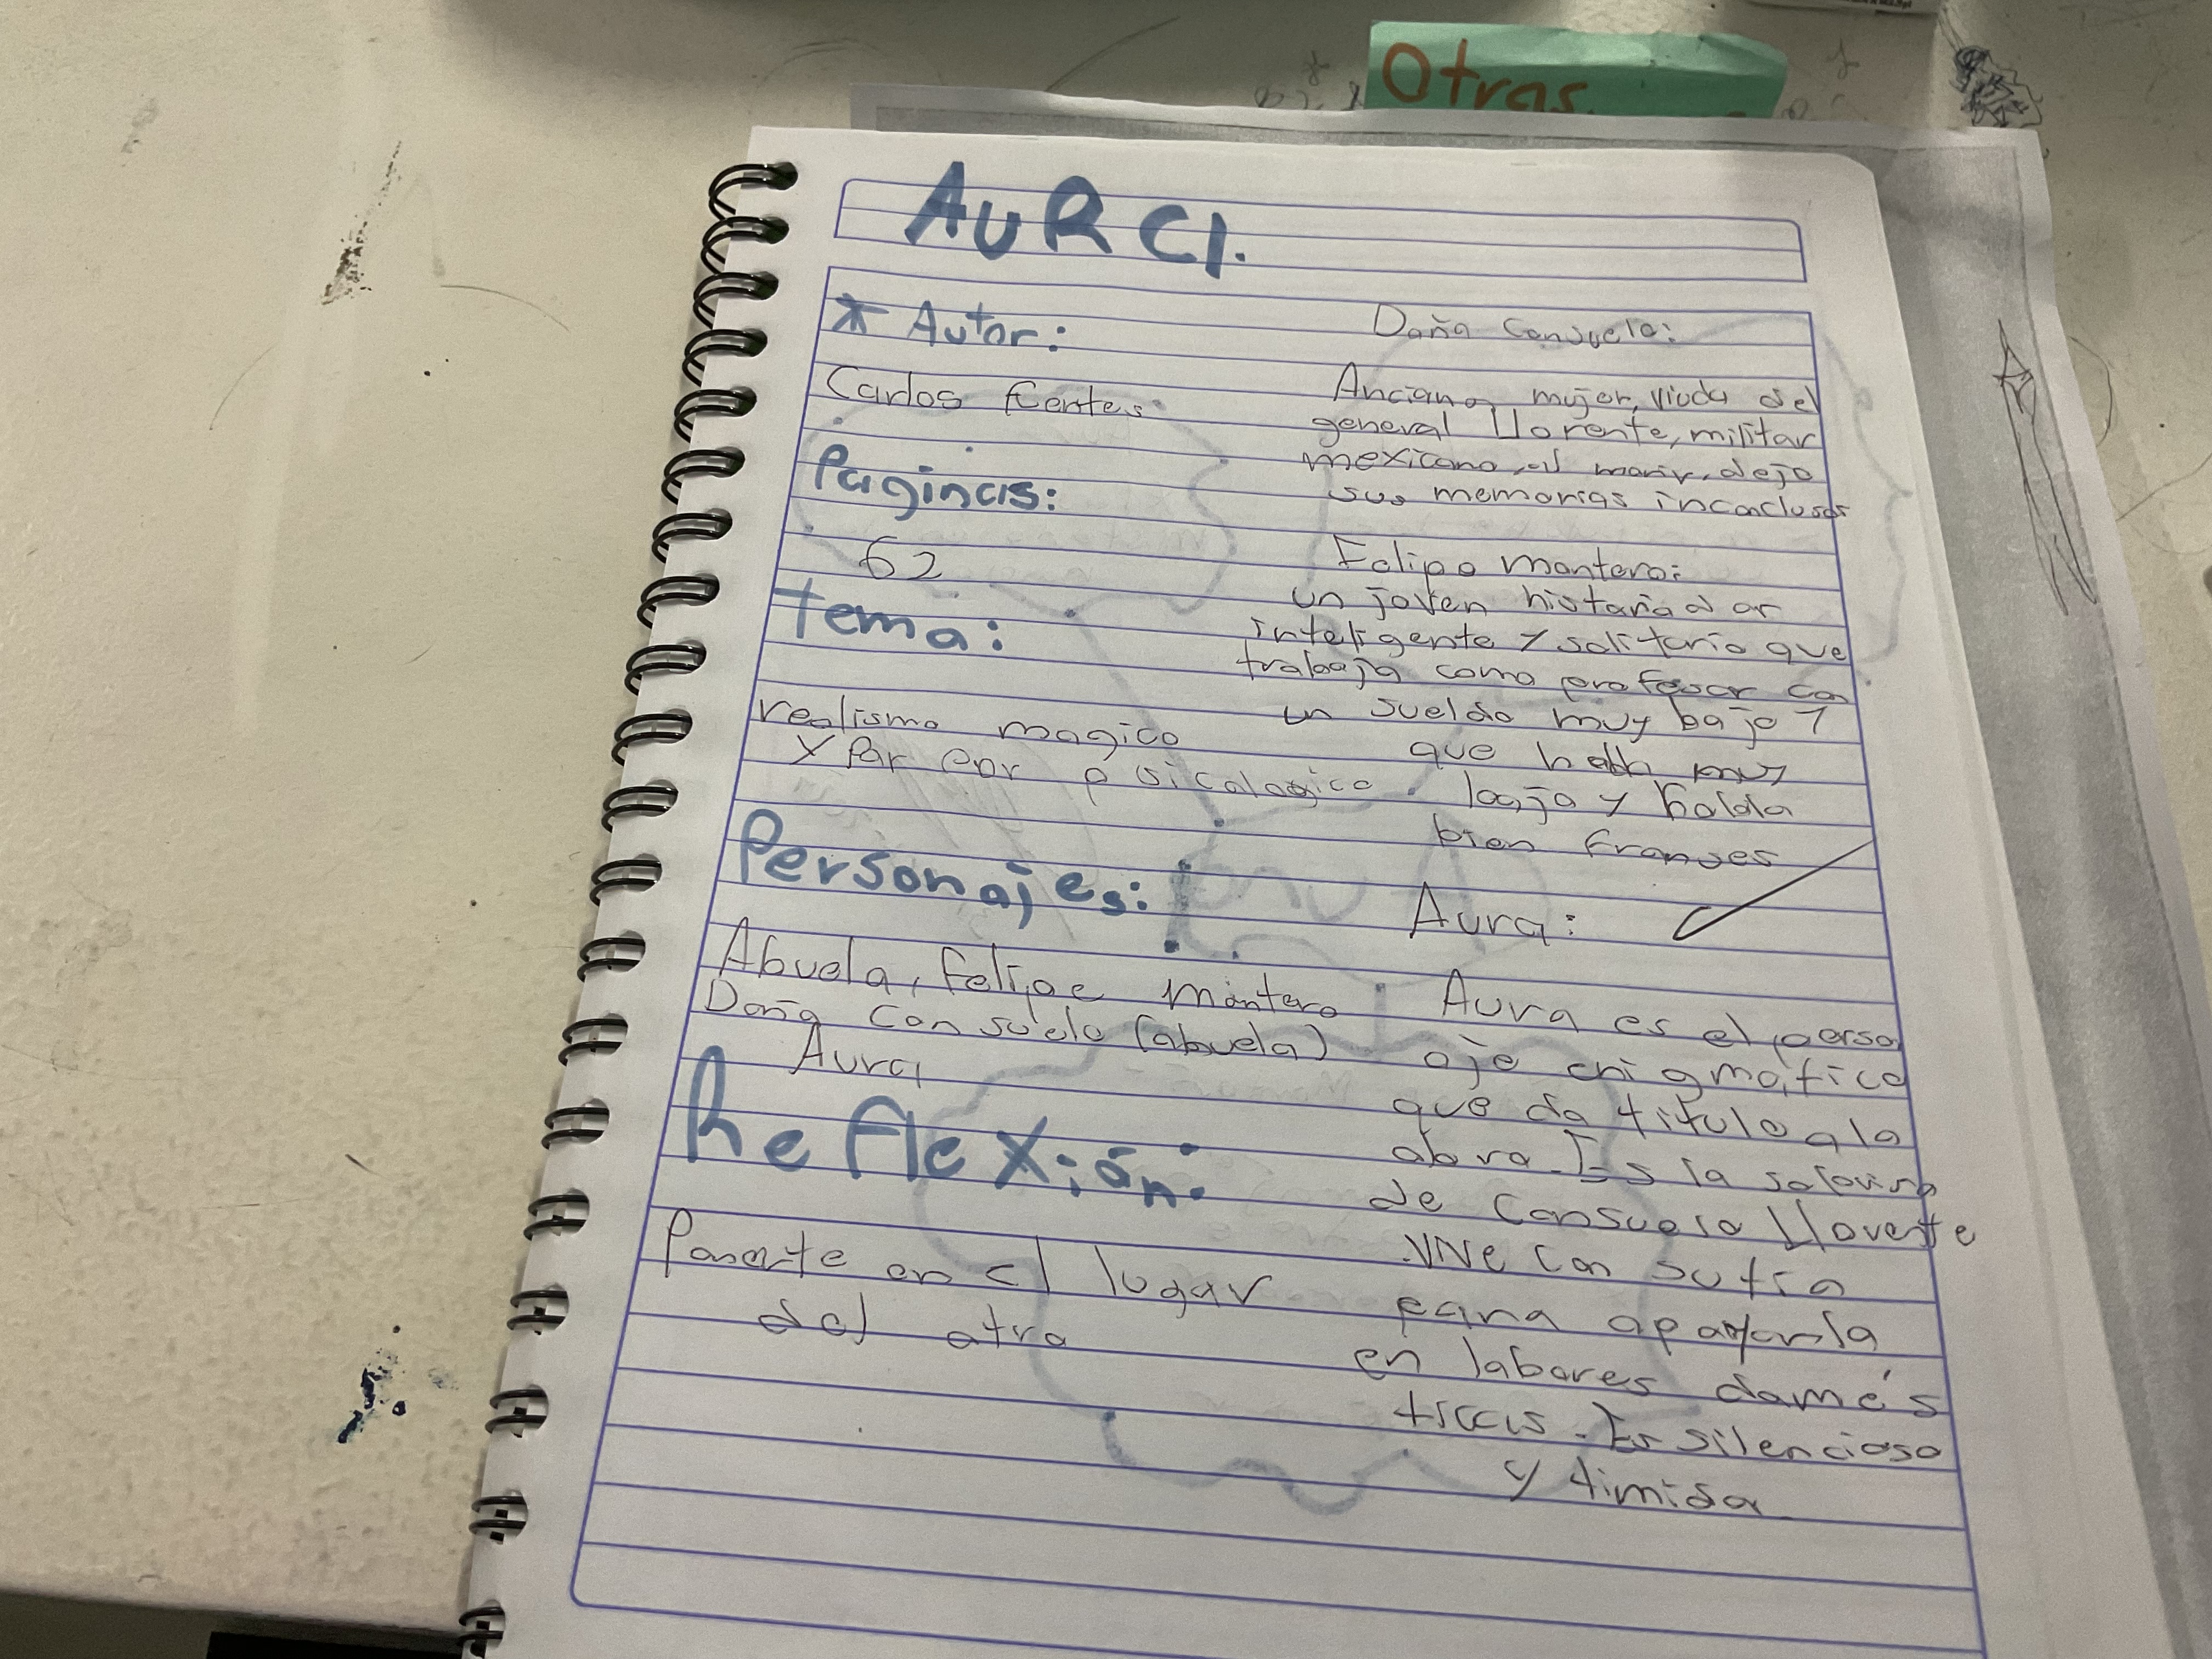 Otras
AURA.
* Autor:
Carlos Fuentes
Paginas:
62
tema:
realismo magico
y Por eor psicologico.
Personajes:
Abuela, Felipe montero
Doña Consuelo (abuela)
Aura
Reflexión:
Ponerte en el lugar
del otro
Doña Consuelo:
Anciana mujer, viuda del
general Llorente, militar
mexicano, al morir, dejo
sus memorias inconclusas
Felipe montero:
un joven historiador
inteligente y solitario que
trabaja como profesor con
un sueldo muy bajo y
que habla muy
bajo y habla
bien franses
Aura:
Aura es el perso
aje enigmático
que da titulo a la
obra. Es la sobrina
de Consuelo Llorente
.Vive con su tía
para apoyarla
en labores domés
ticas. Es silencioso
y timida